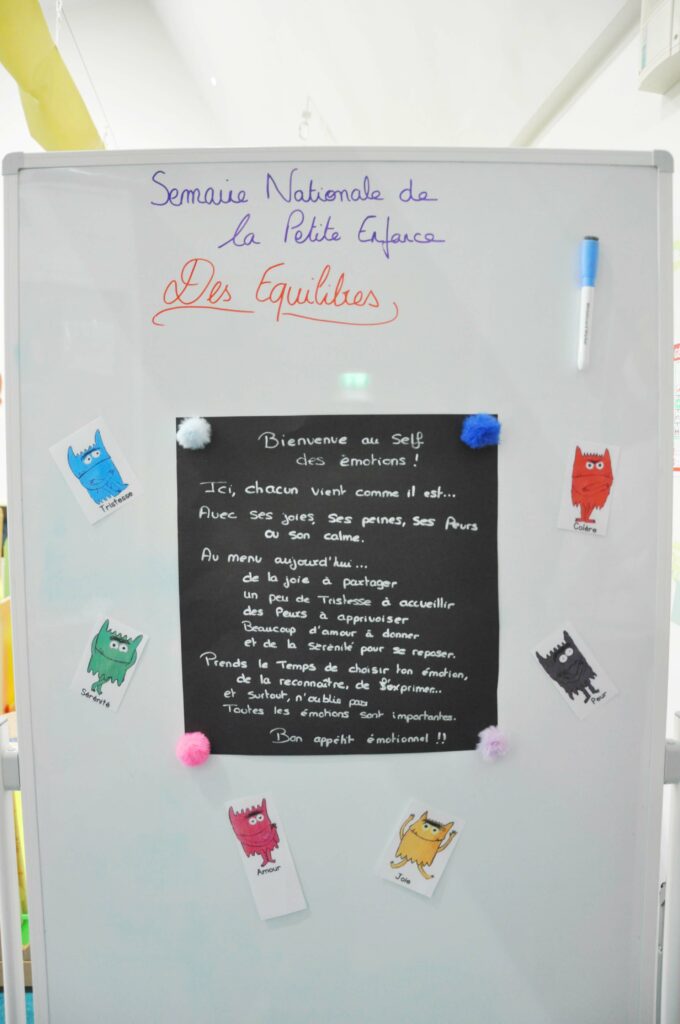 Semaine Nationale de
la Petite Enfance
Des Equilibres
Bienvenue au Self
des émotions !
Ici, chacun vient comme il est...
Avec ses joies, ses peines, ses Peurs
ou son calme.
Au menu aujourd'hui...
de la joie à partager
un peu de Tristesse à accueillir
des Peurs à apprivoiser
Beaucoup d'amour à donner
et de la sérénité pour se reposer.
Prends le Temps de choisir ton émotion,
de la reconnaître, de l'exprimer...
et surtout, n'oublie pas
Toutes les émotions sont importantes.
Bon appétit émotionnel !!
Tristesse
Colère
Sérénité
Peur
Amour
Joie